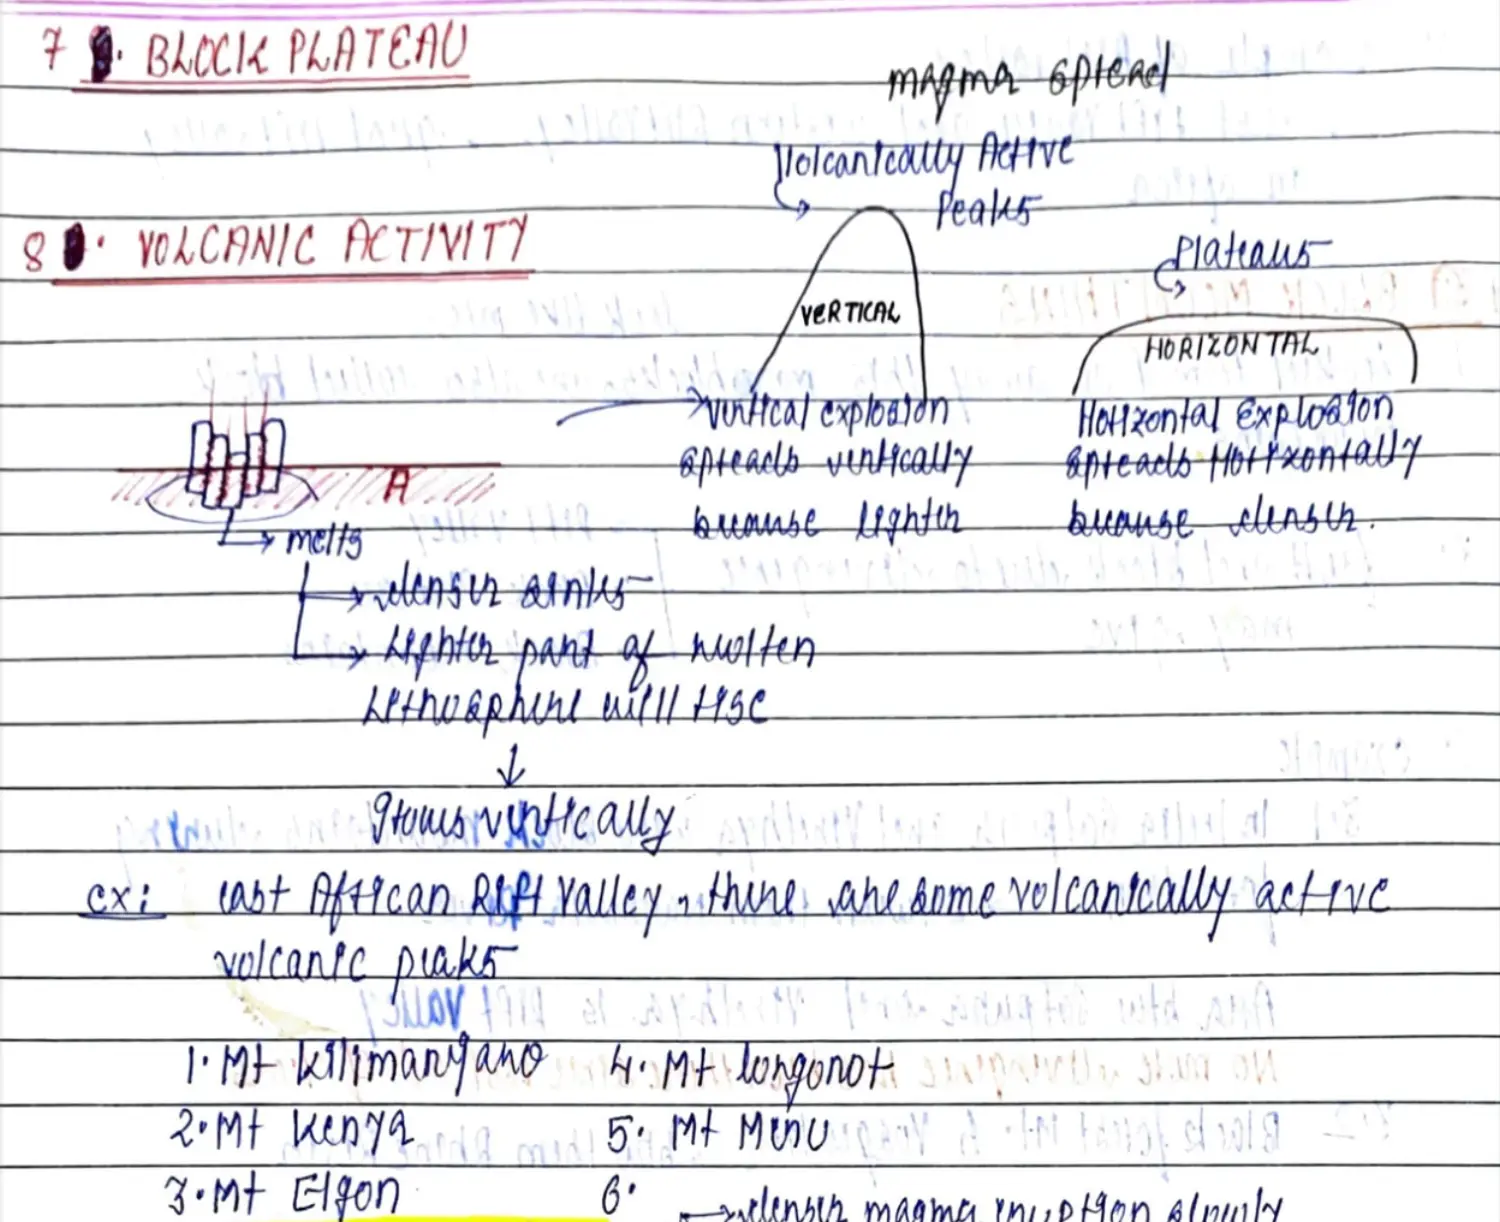 7 . BLOCK PLATEAU
magma spread
Volcanically Active
Peaks
8 . VOLCANIC ACTIVITY
Plateaus
VERTICAL
HORIZONTAL
vertical explosion
spreads vertically
because lighter
Horizontal Explosion
spreads Horizontally
because denser.
A
melts
denser sinks
Lighter part of molten
Lithosphere will rise
grows vertically
ex: east African Rift Valley, there are some volcanically active
volcanic peaks
1. Mt Kilimanjaro
4. Mt longonot
2. Mt Kenya
5. Mt Meru
3. Mt Elgon
6.
denser magma eruption slowly